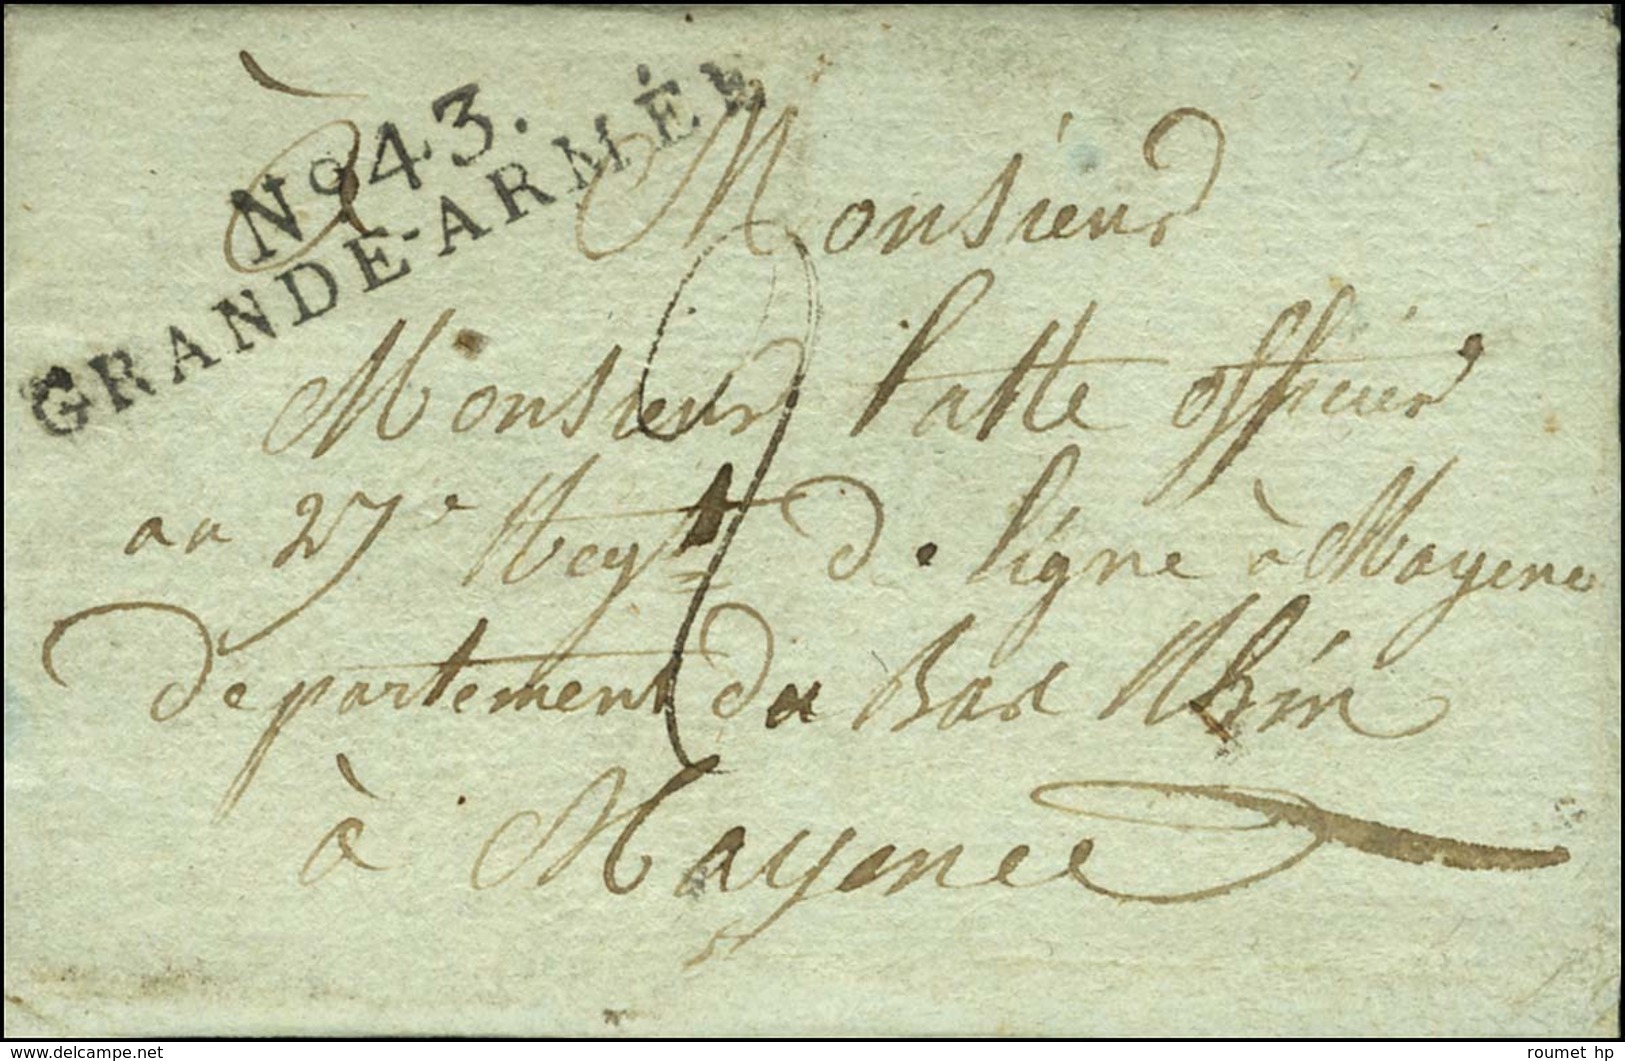 No 43.
GRANDE-ARMÉE
À Monsieur
Monsieur latte officier
au 27e Regt de ligne à Mayene
département du Bas Rhin
à Mayence
roumet hp
delcampe.net